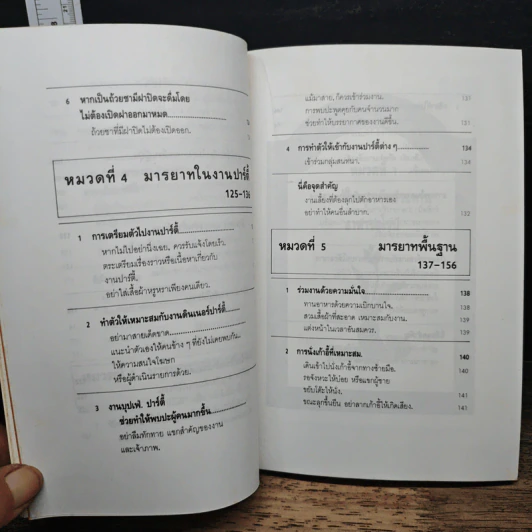 6 หากเป็นถ้วยชามีฝาปิดจะดื่มโดย
ไม่ต้องเปิดฝาออกมาหมด
ถ้วยชาที่มีฝาปิดไม่ต้องเปิดออก.
หมวดที่ 4 มารยาทในงานปาร์ตี้
125-136
1 การเตรียมตัวไปงานปาร์ตี้
หากไม่ไปอย่านิ่งเฉย, ควรรีบแจ้งโดยเร็ว.
ตระเตรียมเรื่องราวหรือเนื้อหาเกี่ยวกับ
งานปาร์ตี้.
อย่าใส่เสื้อผ้าหรูหราเพียงคนเดียว.
2 ทำตัวให้เหมาะสมกับงานดินเนอร์ปาร์ตี้
อย่ามาสายเด็ดขาด
แนะนำตัวเองให้คนข้าง ๆ ที่ยังไม่เคยพบกัน
ให้ความสนใจโฆษก
หรือผู้ดำเนินรายการด้วย.
3 งานบุปเฟ่. ปาร์ตี้
ช่วยทำให้พบปะผู้คนมากขึ้น
อย่าลืมทักทาย แขกสำคัญของงาน
และเจ้าภาพ.
แม้มาสาย, ก็ควรเข้าร่วมงาน. 131
การพบปะพูดคุยกับคนจำนวนมาก
ช่วยทำให้บรรยากาศของงานดีขึ้น. 131
4 การทำตัวให้เข้ากับงานปาร์ตี้ต่าง ๆ 134
เข้าร่วมกลุ่มสนทนา. 134
นี่คือจุดสำคัญ
งานเลี้ยงที่ต้องลุกไปตักอาหารเอง
อย่าทำให้คนอื่นลำบาก. 132
หมวดที่ 5 มารยาทพื้นฐาน
137-156
1 ร่วมงานด้วยความมั่นใจ 138
ทานอาหารด้วยความเบิกบานใจ. 138
สวมเสื้อผ้าที่สะอาด เหมาะสมกับงาน. 139
แต่งหน้าในเวลาอันสมควร. 139
2 การนั่งเก้าอี้ที่เหมาะสม. 140
เดินเข้าไปนั่งเก้าอี้จากทางซ้ายมือ. 140
รอจังหวะให้บ๋อย หรือแขกผู้ชาย
ขยับโต๊ะให้นั่ง. 141
ขณะลุกขึ้นยืน อย่าลากเก้าอี้ให้เกิดเสียง. 141